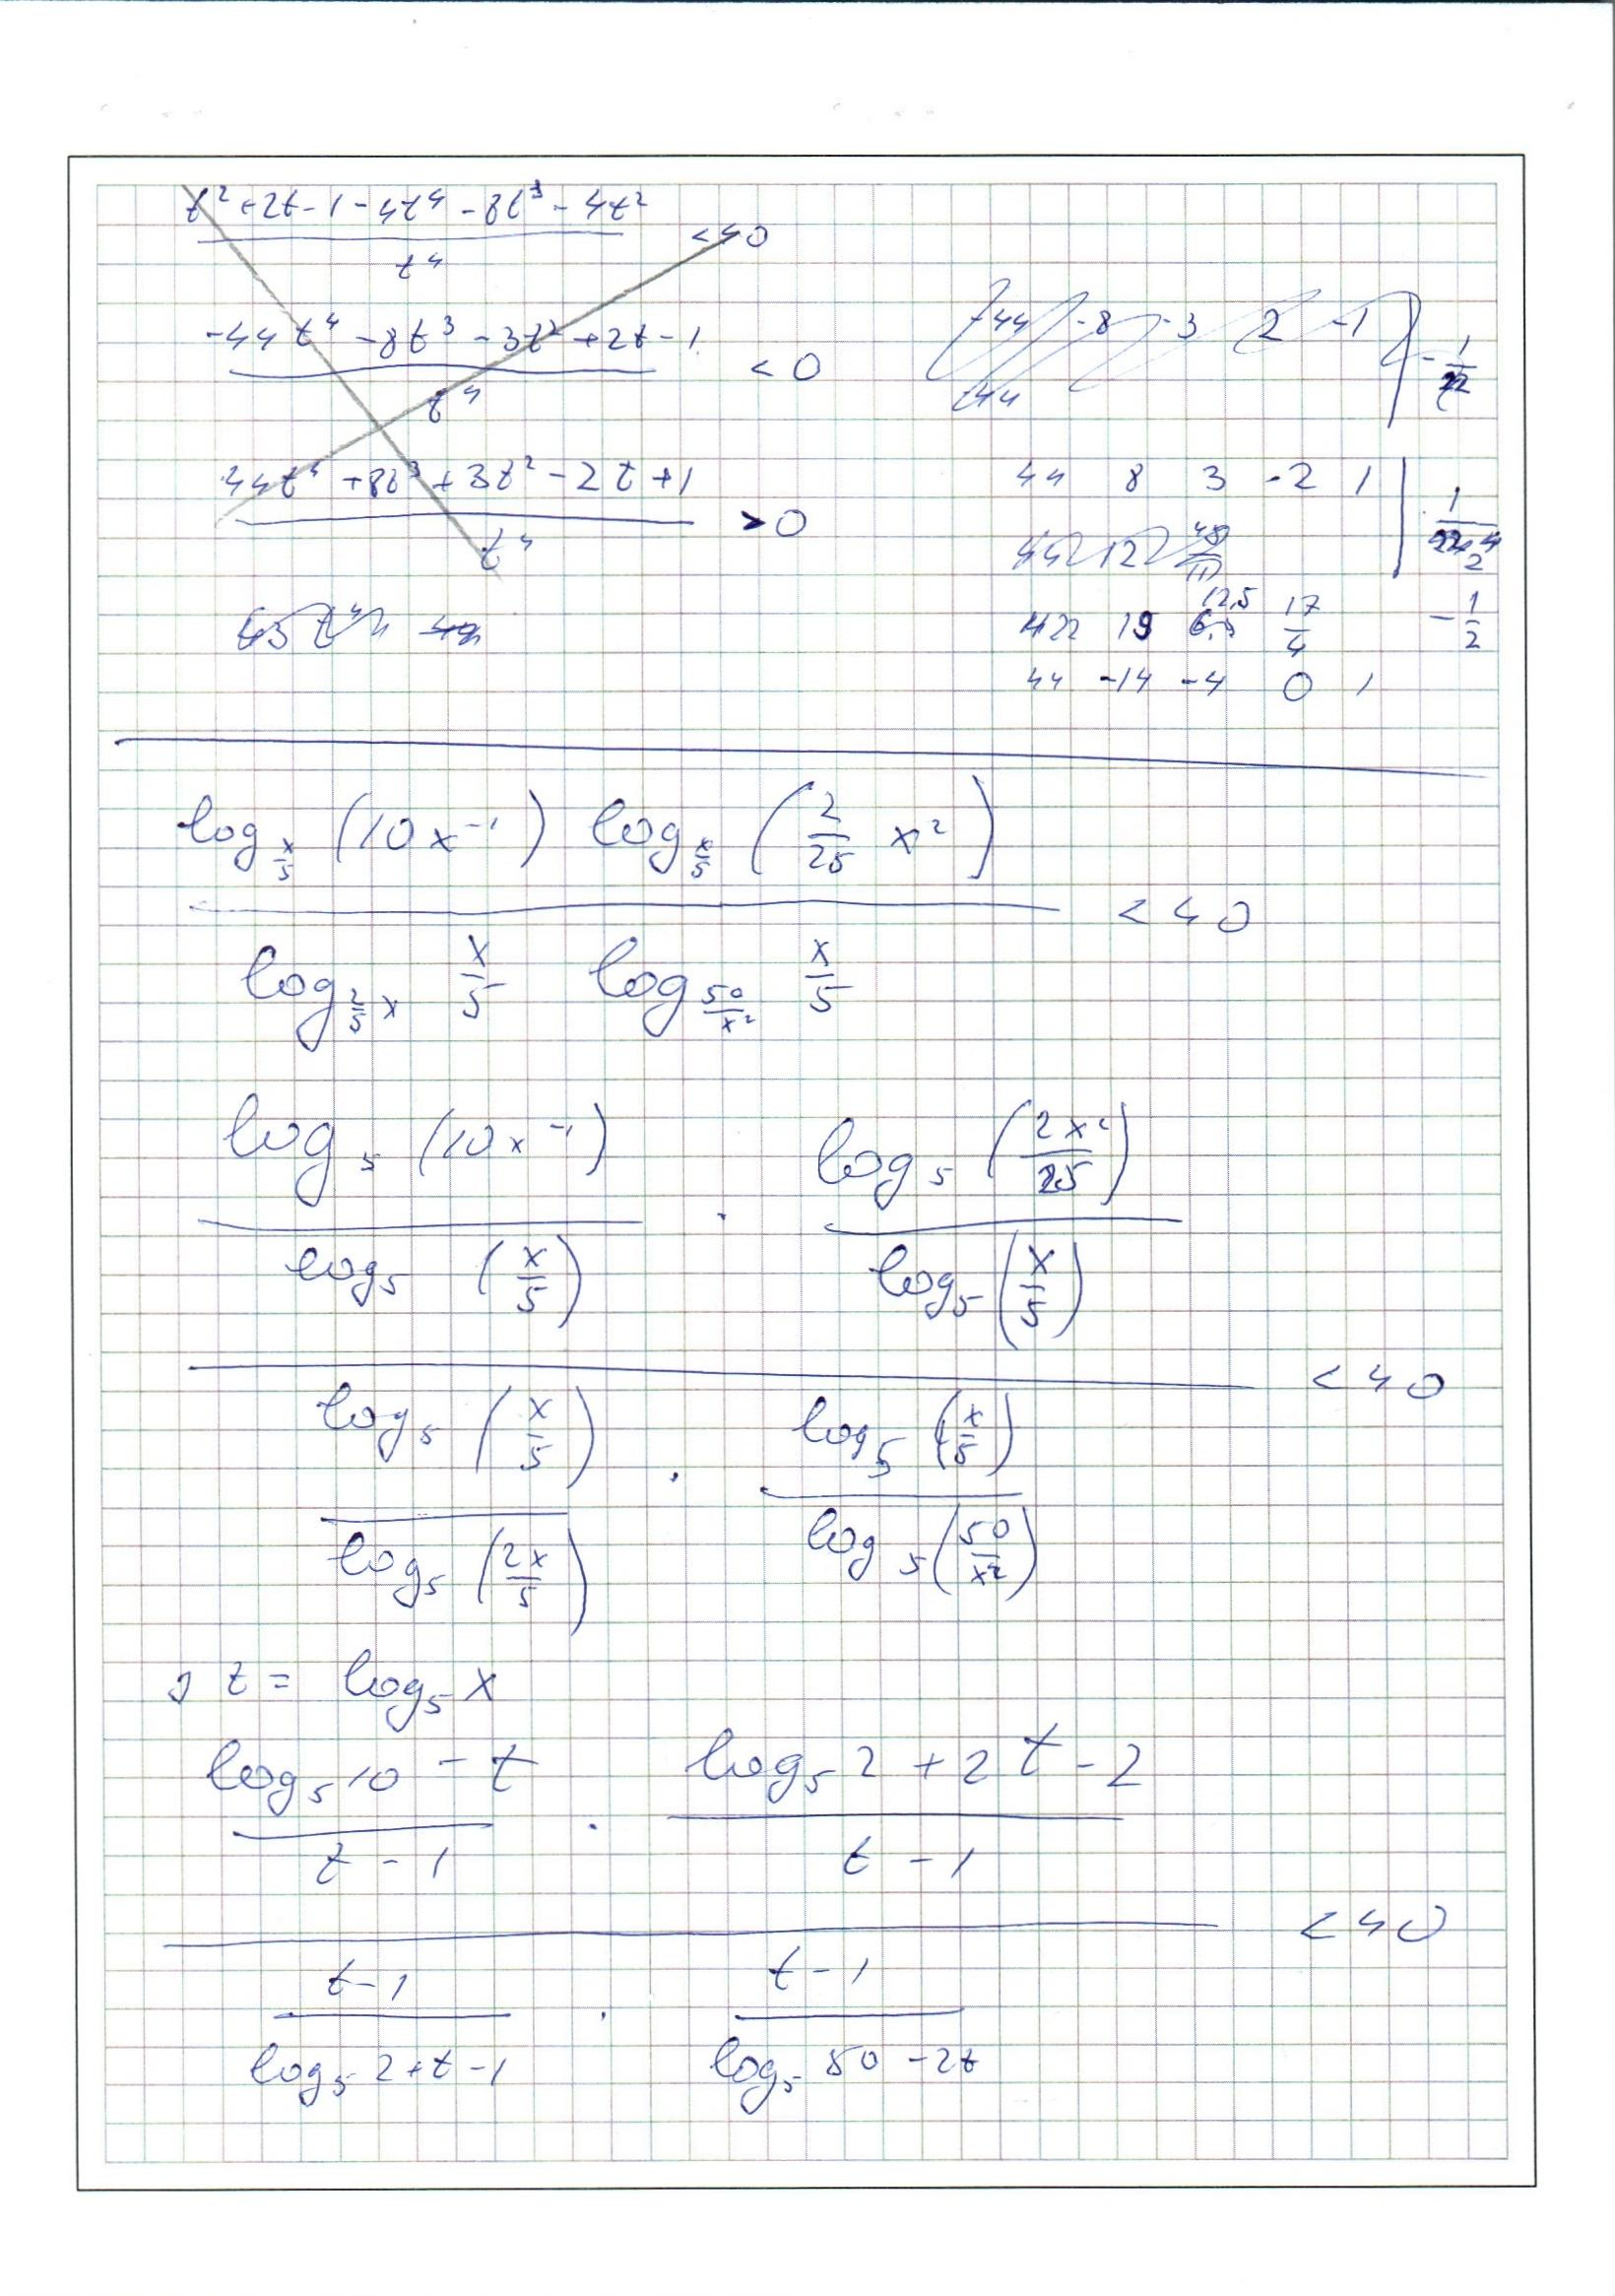 t² + 2t - 1 - 4t⁴ - 8t³ - 4t²
< 40
t⁴
-44t⁴ - 8t³ - 3t² + 2t - 1
< 0
t⁴
-44 -8 -3 2 -1
-44
44t⁴ + 8t³ + 3t² - 2t + 1
> 0
t⁴
44 8 3 -2 1
44 12 48/11
22 19 12,5 17/4 -1/2
44 -14 -4 0 1
log_{x/5} (10x⁻¹) log_{x/5} (2/25 x²)
< 40
log_{2/5 x} x/5 log_{50/x²} x/5
log₅ (10x⁻¹) · log₅ (2x²/25)
log₅ (x/5) log₅ (x/5)
< 40
log₅ (x/5) · log₅ (x/5)
log₅ (2x/5) log₅ (50/x²)
t = log₅ x
log₅ 10 - t · log₅ 2 + 2t - 2
t - 1 t - 1
< 40
t - 1 · t - 1
log₅ 2 + t - 1 log₅ 50 - 2t